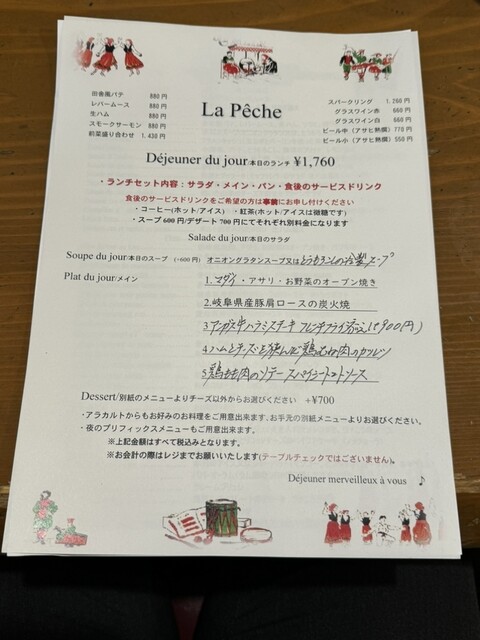 田舎風パテ 880円
レバームース 880円
生ハム 880円
スモークサーモン 880円
前菜盛り合わせ 1.430円
La Pêche
スパークリング 1.260円
グラスワイン赤 660円
グラスワイン白 660円
ビール中（アサヒ熟撰）770円
ビール小（アサヒ熟撰）550円
Déjeuner du jour/本日のランチ ¥1,760
・ランチセット内容：サラダ・メイン・パン・食後のサービスドリンク
食後のサービスドリンクをご希望の方は事前にお申し付けください
・コーヒー(ホット/アイス) ・紅茶(ホット/アイスは微糖です)
・スープ600円/デザート700円にてそれぞれ別料金になります
Salade du jour/本日のサラダ
Soupe du jour/本日のスープ (+600円) オニオングラタンスープ又はとうもろこしの冷製スープ
Plat du jour/メイン
1.マダイ・アサリ・お野菜のオーブン焼き
2.岐阜県産豚肩ロースの炭火焼
3 アンガス牛ハラミステーキ フレンチフライ添え(+900円)
4 ハムとチーズを挟んだ鶏むね肉のカツレツ
5 鶏もも肉のソテー スパイシートマトソース
Dessert/別紙のメニューよりチーズ以外からお選びください +¥700
・アラカルトからもお好みのお料理をご用意出来ます。お手元の別紙メニューよりお選びください。
・夜のプリフィックスメニューもご用意出来ます。
※上記金額はすべて税込みとなります。
※お会計の際はレジまでお願いいたします(テーブルチェックではございません)。
Déjeuner merveilleux à vous ♪